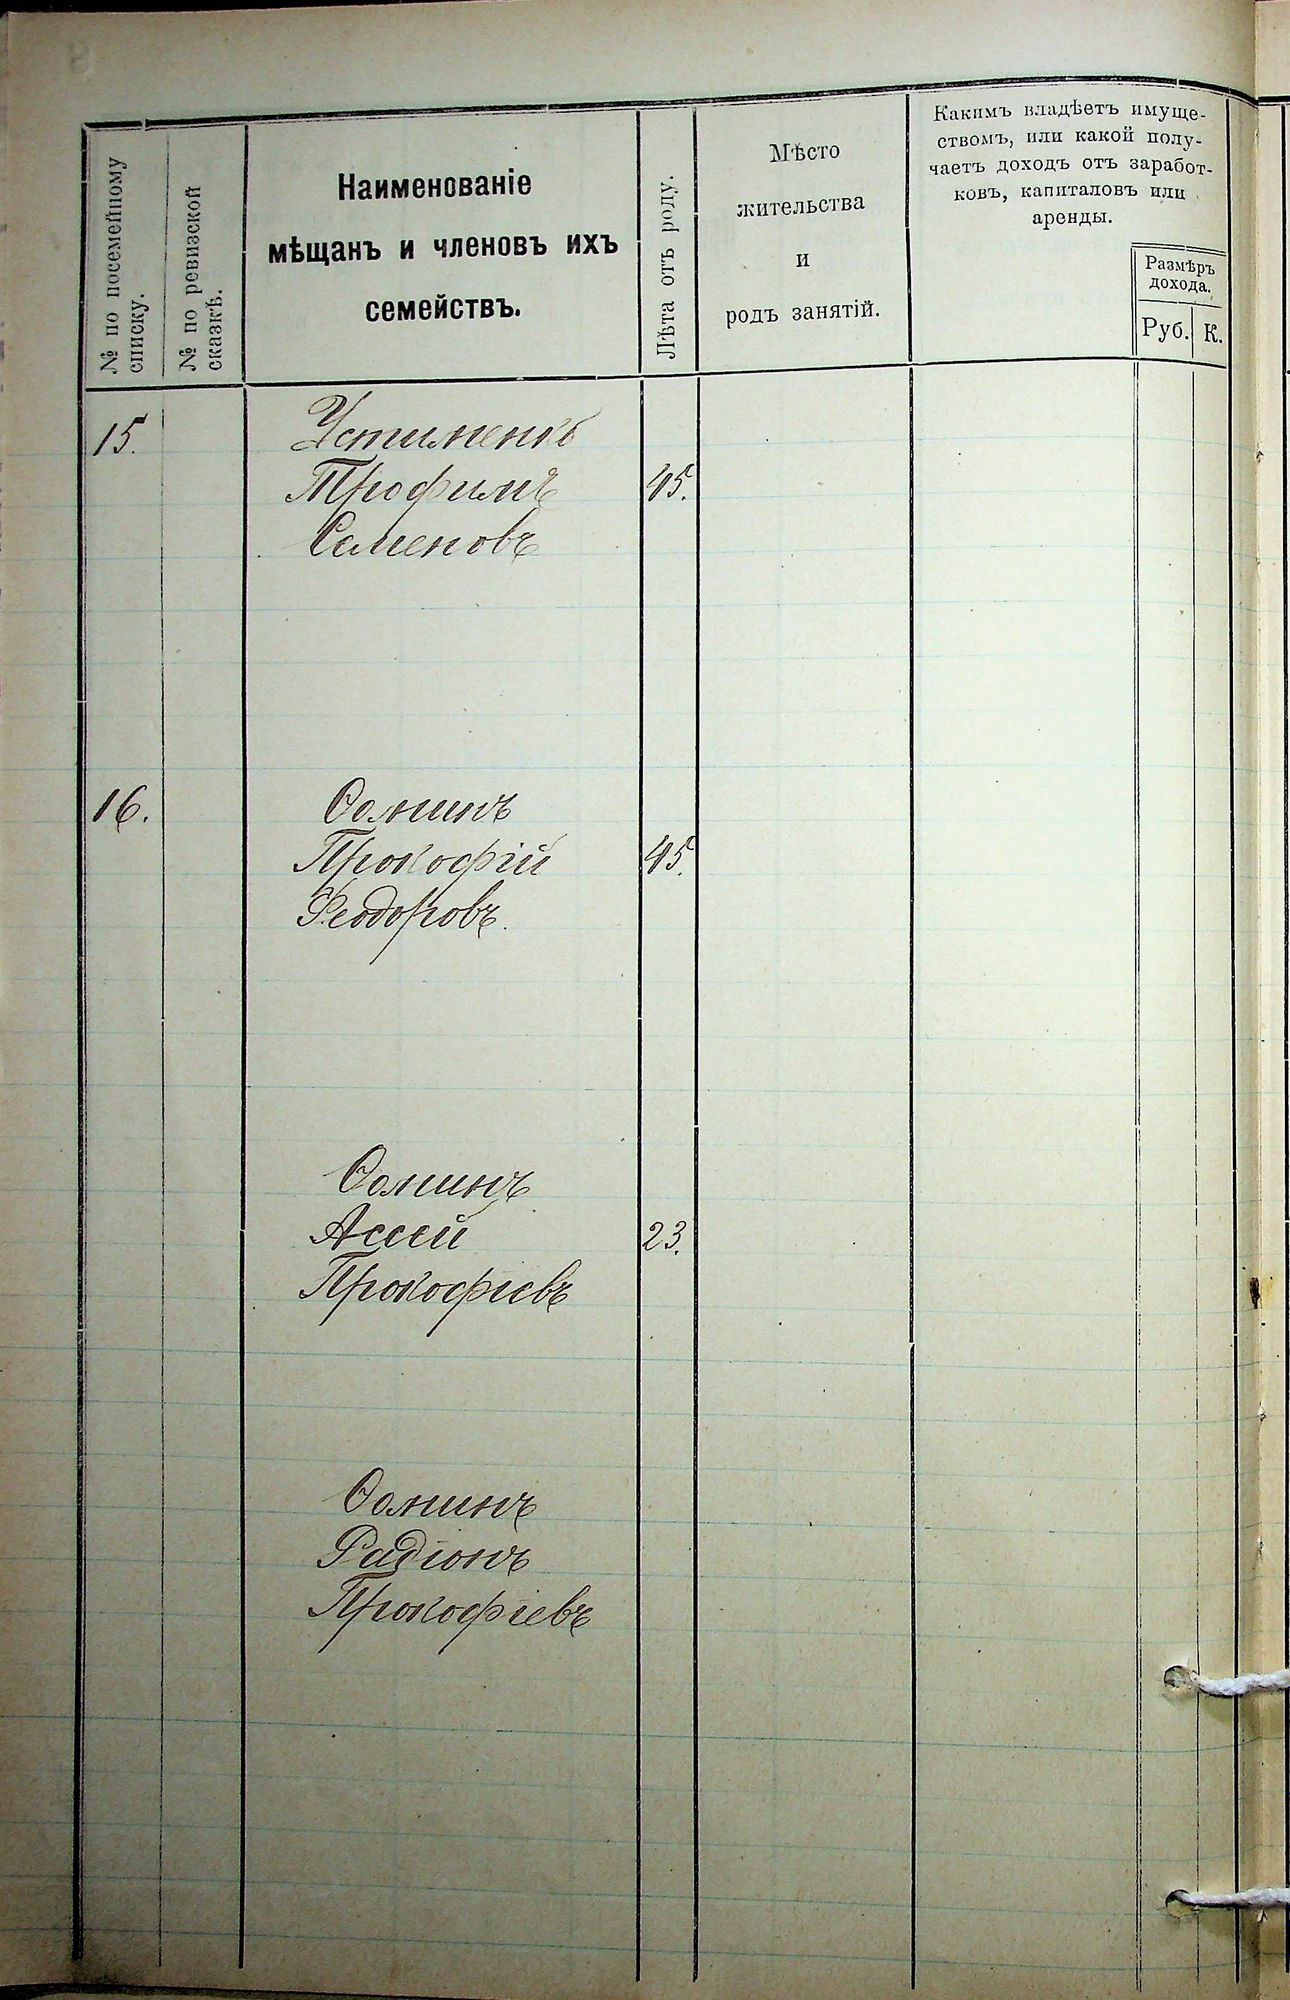 № по посемейному
списку.
№ по ревизской
сказкѣ.
Наименованіе
мѣщанъ и членовъ ихъ
семействъ.
Лѣта отъ роду.
Мѣсто
жительства
и
родъ занятій.
Какимъ владѣетъ имуще-
ствомъ, или какой полу-
чаетъ доходъ отъ заработ-
ковъ, капиталовъ или
аренды.
Размѣръ
дохода.
Руб. К.
15. Устименко
Трофимъ 45.
Семеновъ
16. Ѳоминъ
Прокофій 45.
Феодоровъ.
Ѳоминъ
23.
Прокофіевъ
Ѳоминъ
Радіонъ
Прокофіевъ